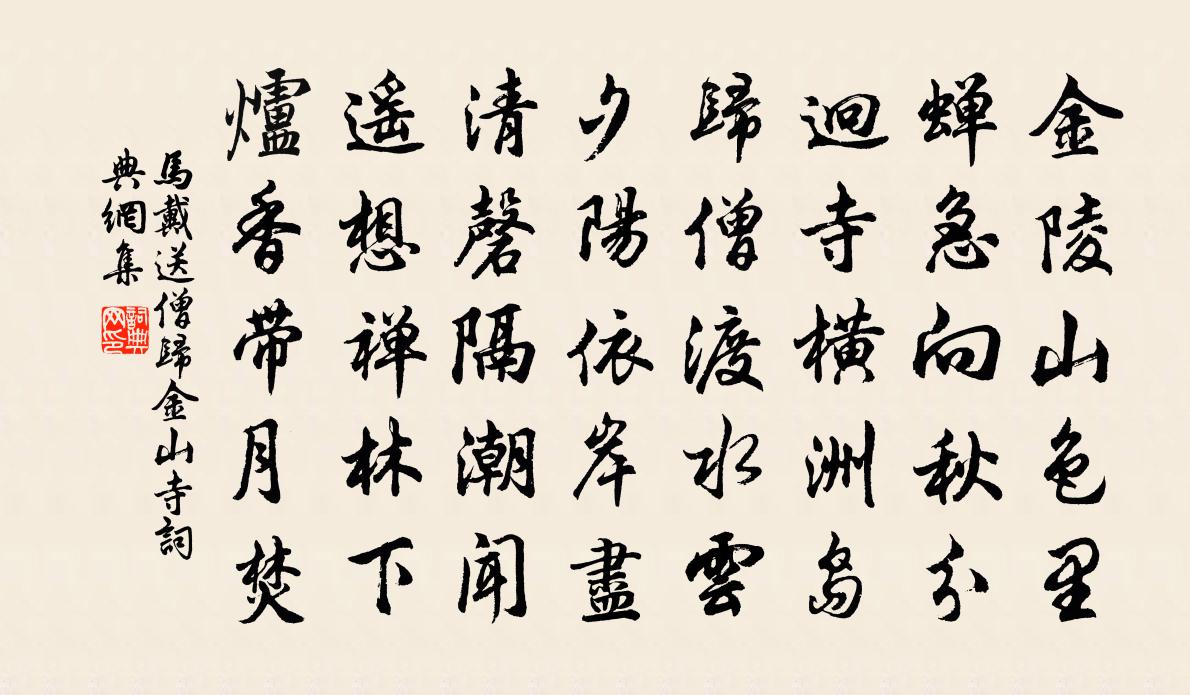 金陵山色里
蝉急向秋分
迥寺橫洲島
歸僧渡水雲
夕陽依岸盡
清磬隔潮聞
遥想禅林下
爐香带月焚
馬戴送僧歸金山寺詞
典網集
詞典
网印